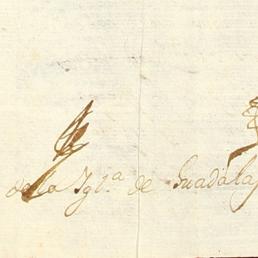 de la Igl.ª de Guadala